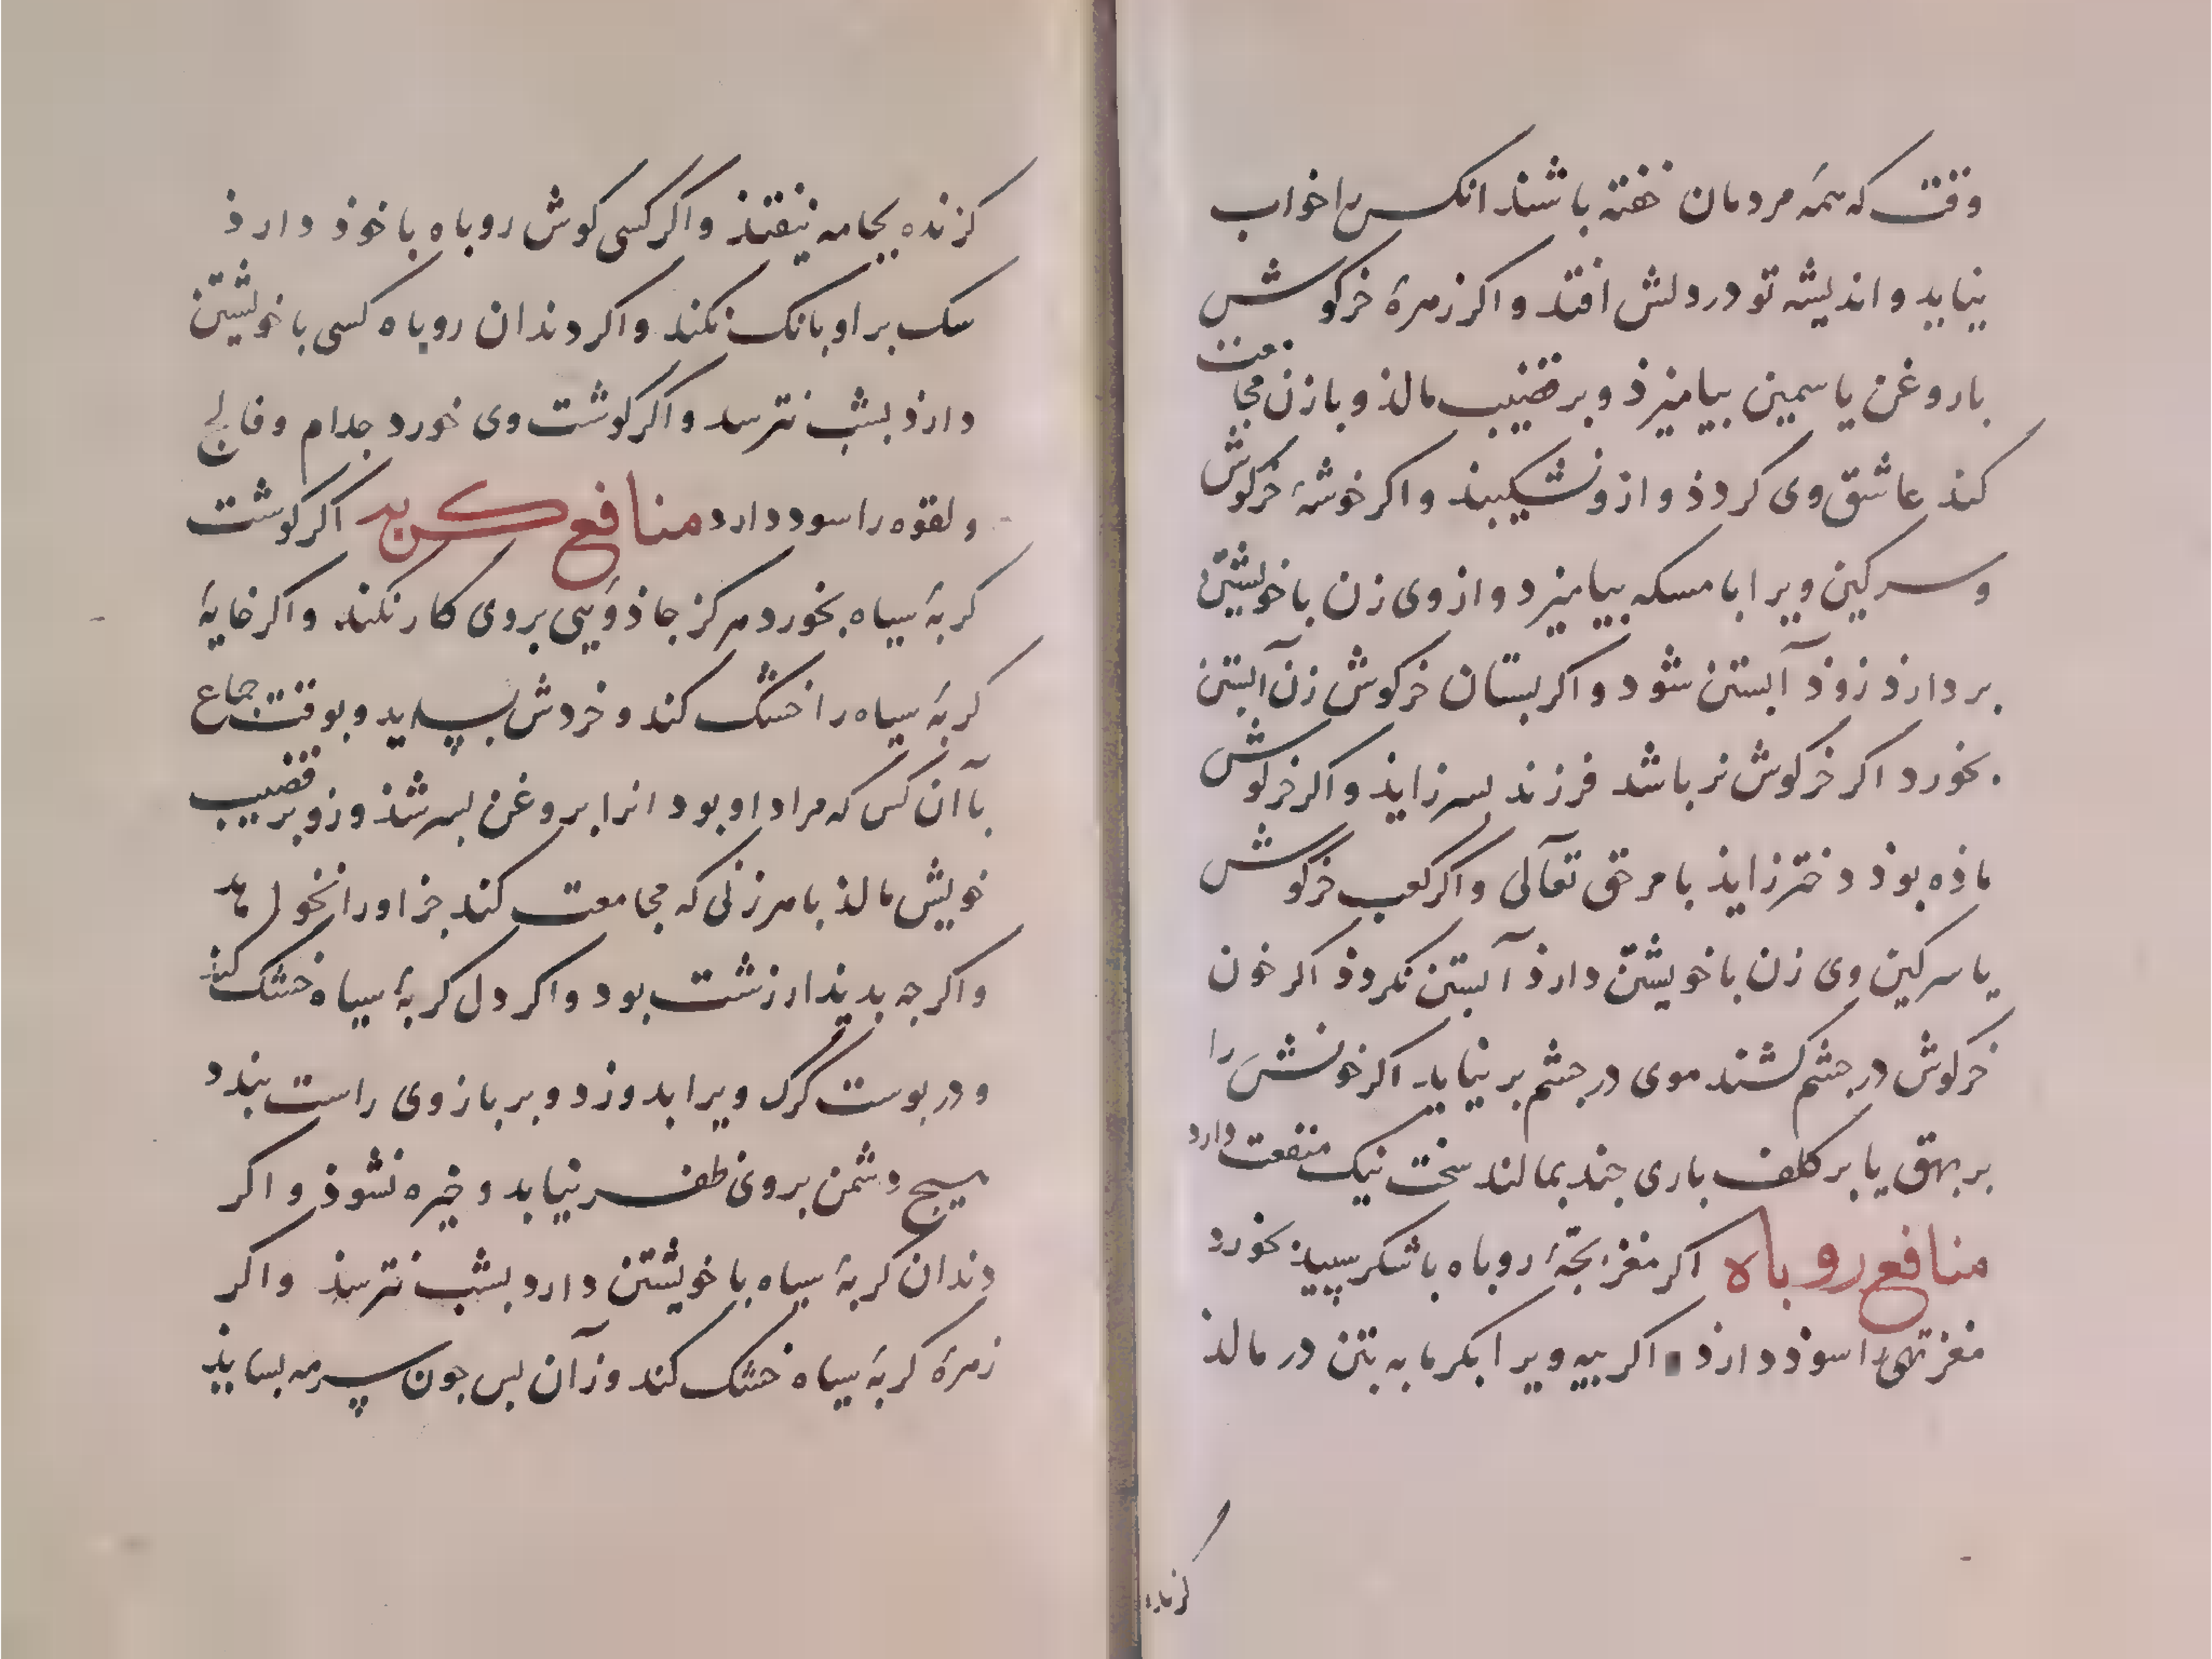 وقت که همه مردمان خفته باشند انکس را خواب
نیاید و اندیشه تو در دلش افتد و اکر زهرهٔ خرکوش
با روغن یاسمین بیامیزذ و بر قضیب مالذ و با زن مجامعت
کند عاشق وی کردذ و ازو نشکیبند و اکر خوشهٔ خرکوش
و سرکین ویرا با مسکه بیامیزد و از وی زن با خویشتن
بر دارذ زوذ آبستن شود و اکر بستان خرکوش زن آبستن
بخورد اکر خرکوش نر باشد فرزند پسر زایذ و اکر خرکوش
ماذه بوذ دختر زایذ بامر حق تعآلی و اکر کعب خرکوش
یا سرکین وی زن با خویشتن دارذ آبستن نکردذ اکر خون
خرکوش در جشم کشند موی در جشم بر نیاید اکر خونش را
بر بهق یا بر کلف باری جند بمالند سخت نیک منفعت دارد
منافع روباه اکر مغز بجّهٔ روباه با شکر سپیذ بخورد
مغز تهی را سوذ دارذ اکر پیه ویرا بکرمابه بتن در مالذ
کزنده
کزنده بجامه نیفتذ و اکر کسی کوش روباه با خوذ دارذ
سک بر او بانک نکند و اکر دندان روباه کسی با خویشتن
دارذ بشب نترسد و اکر کوشت وی خورد جدام و فالج
و لقوه را سود دارد منافع کربه اکر کوشت
کربهٔ سیاه بخورد هرکز جاذویی بر وی کار نکند و اکر خایهٔ
کربهٔ سیاه را خشک کند و خردش بساید و بوقت جماع
با آن کس که مراد او بود انرا بروغن بسرشذ وزو بر قضیب
خویش مالذ با هر زنی که مجامعت کند جز او را نخواهد
و اکر جه بدیذار زشت بود و اکر دل کربهٔ سیاه خشک کند
و در بوست کرک ویرا بدوزد و بر بازوی راست بندد
هیج دشمن بر وی ظفر نیابد و خیره نشوذ و اکر
دندان کربهٔ سیاه با خویشتن دارد بشب نترسذ و اکر
زهرهٔ کربهٔ سیاه خشک کند وز آن بس جون سرمه بسایذ